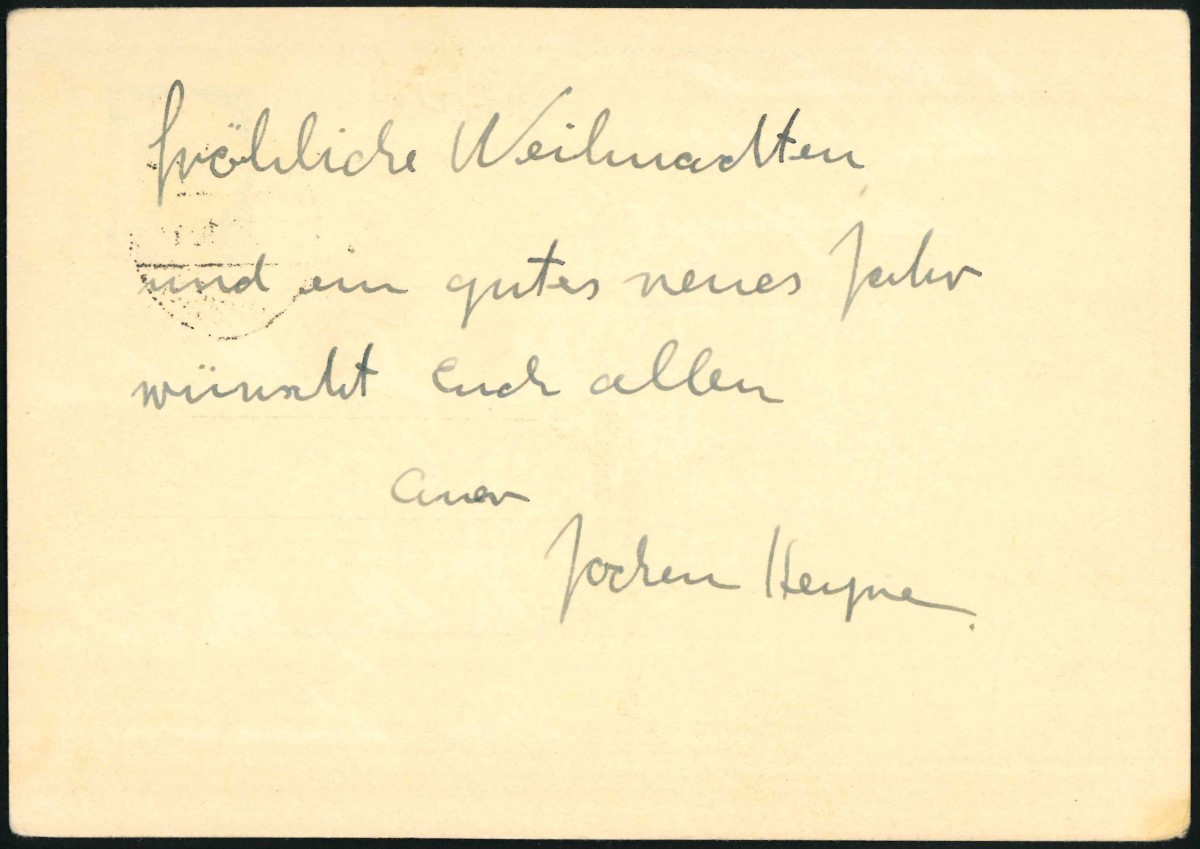 fröhliche Weihnachten
und ein gutes neues Jahr
wünscht Euch allen
Euer
Jochen Heyne.